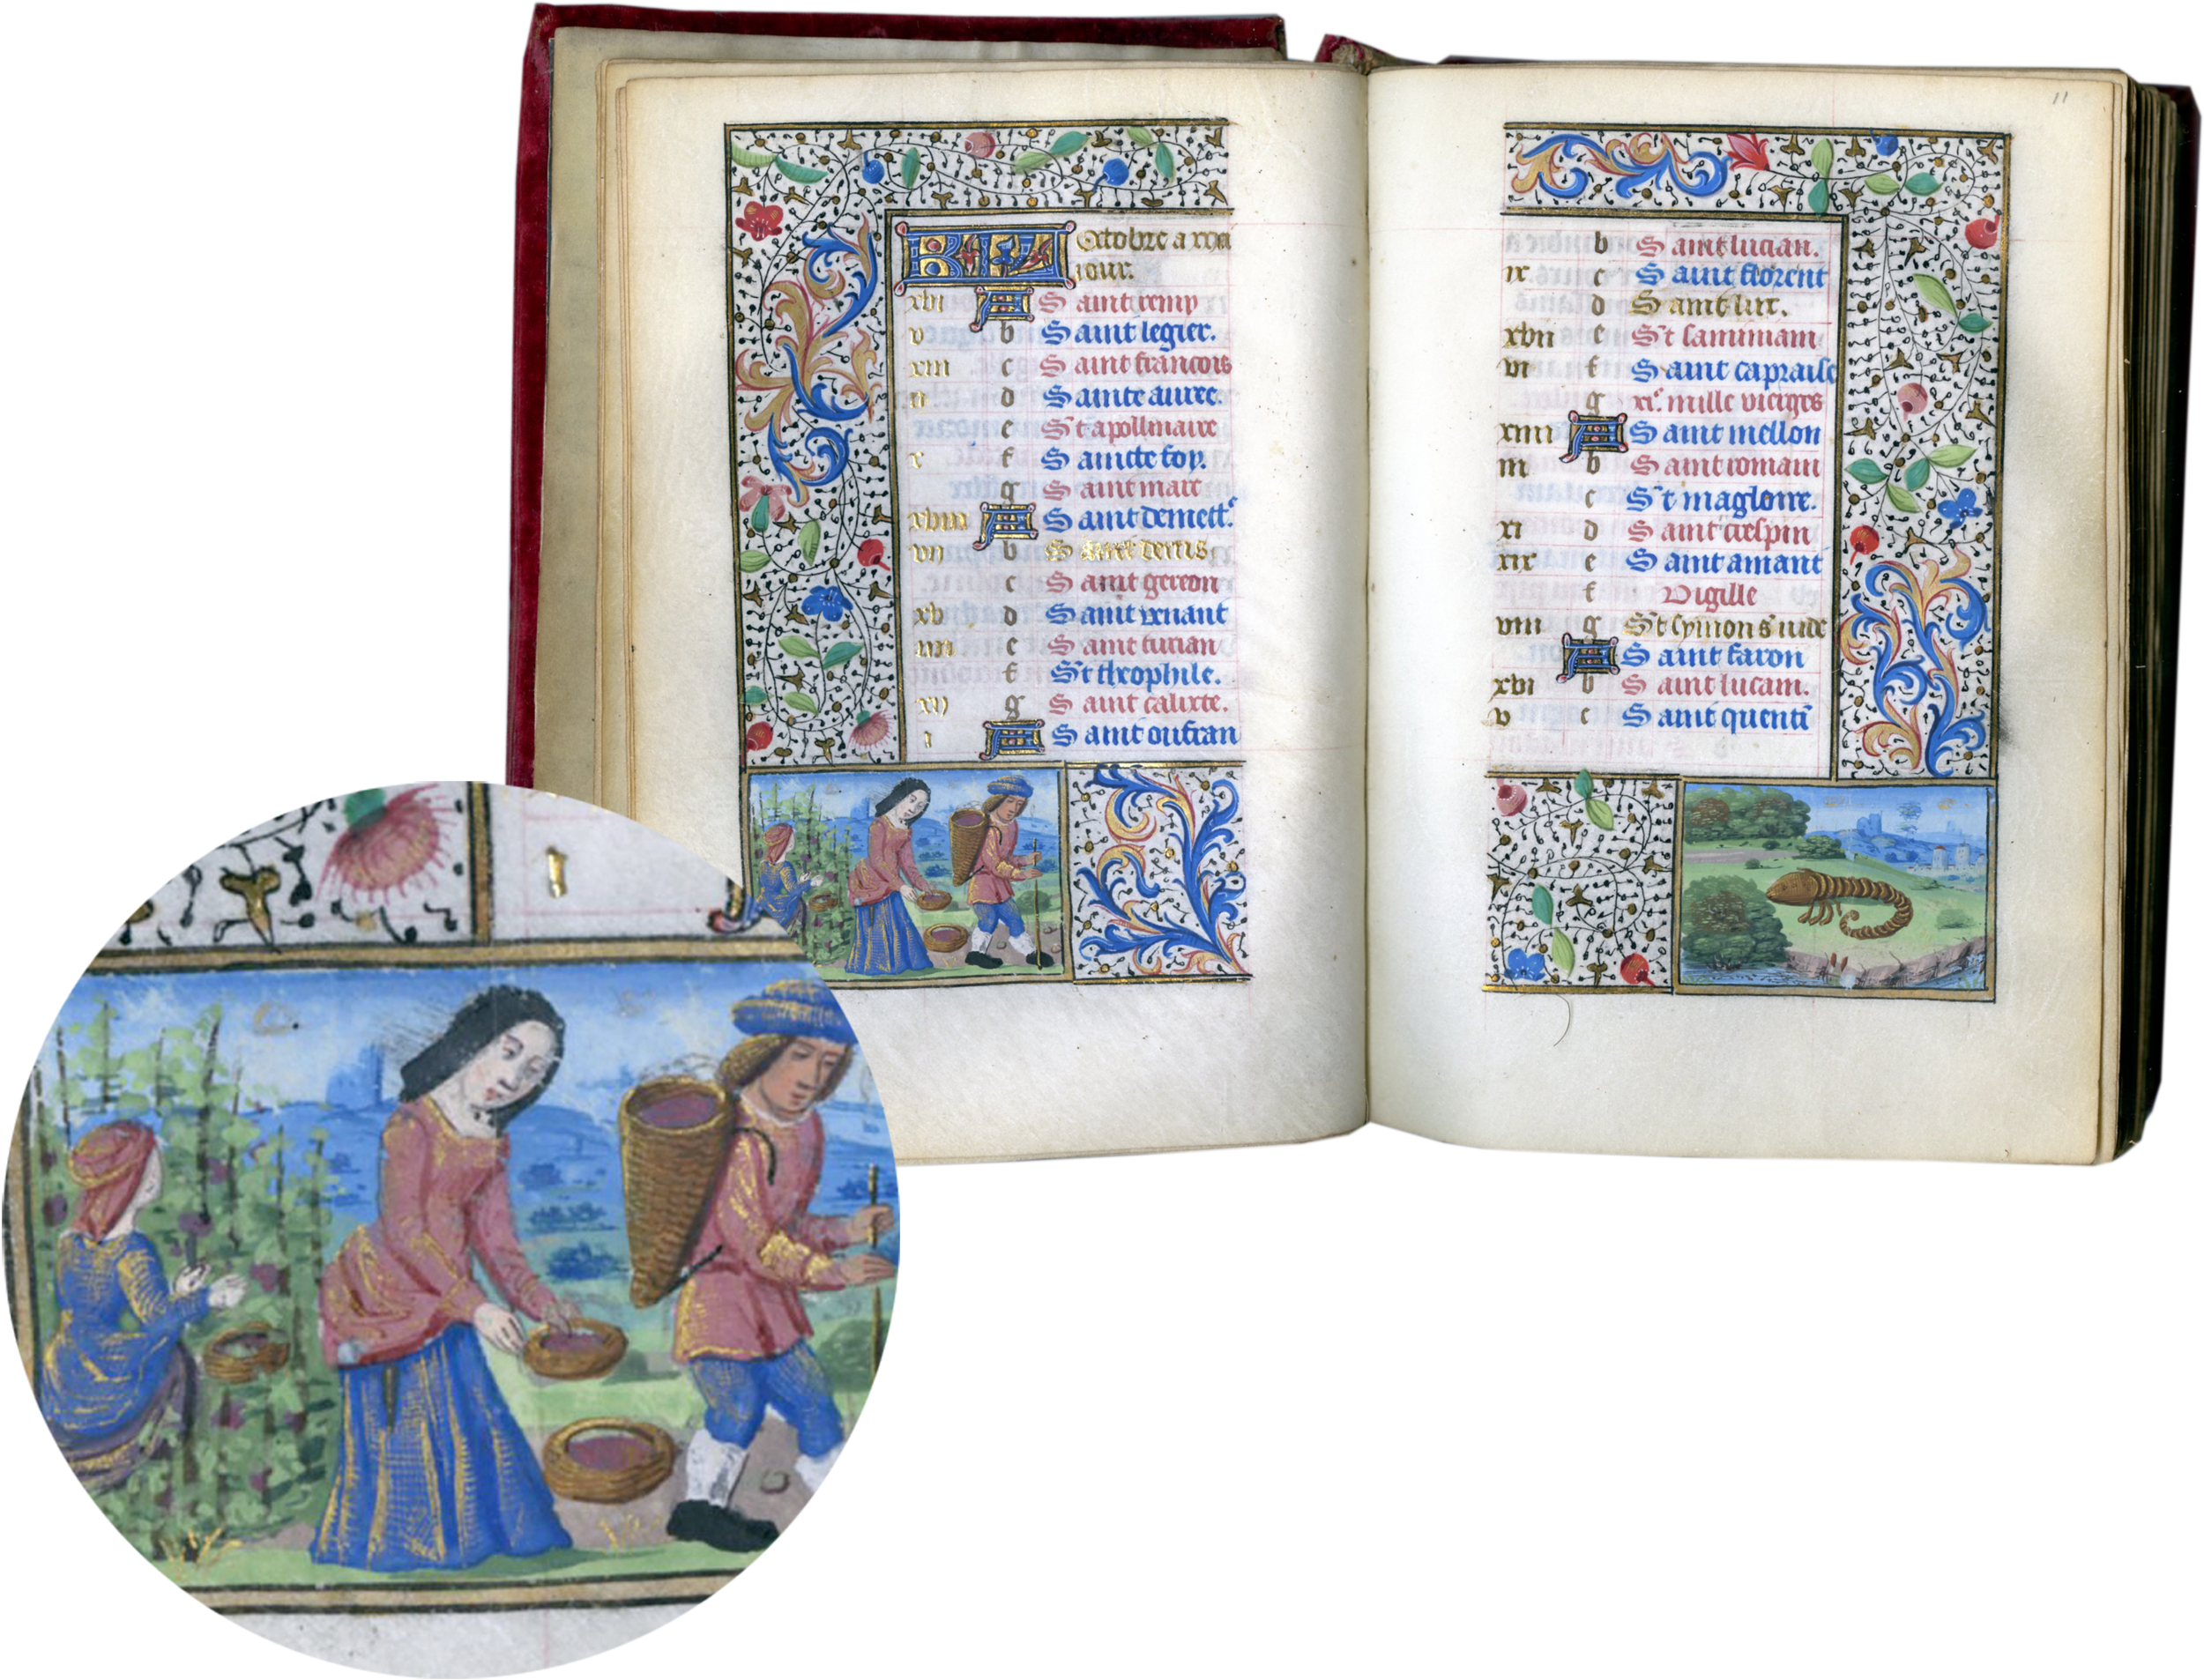 KL Octobre a xxxi
jour.
xvi A Saint remy
v b Saint legier.
xiii c Saint francois
ii d Sainte auree.
e St apollinaire
x f Saincte foy.
g Saint marc
xviii A Saint demetr
vii b Saint denis
c Saint gereon
xv d Saint venant
iiii e Saint lucian
f St theophile.
xii g Saint calixte.
i A Saint oufran
11
b Saint lucian.
ix. c Saint florent
d Saint luc.
xvii e St saminiam
vi f Saint capraise
g xi. mille vierges
xiiii A Saint mellon
iii b Saint romain
c St magloire.
xi d Saint crespin
xix e Saint amant
f Vigille
viii g St symon s iude
A Saint faron
xvi b Saint lucam.
v c Saint quenti